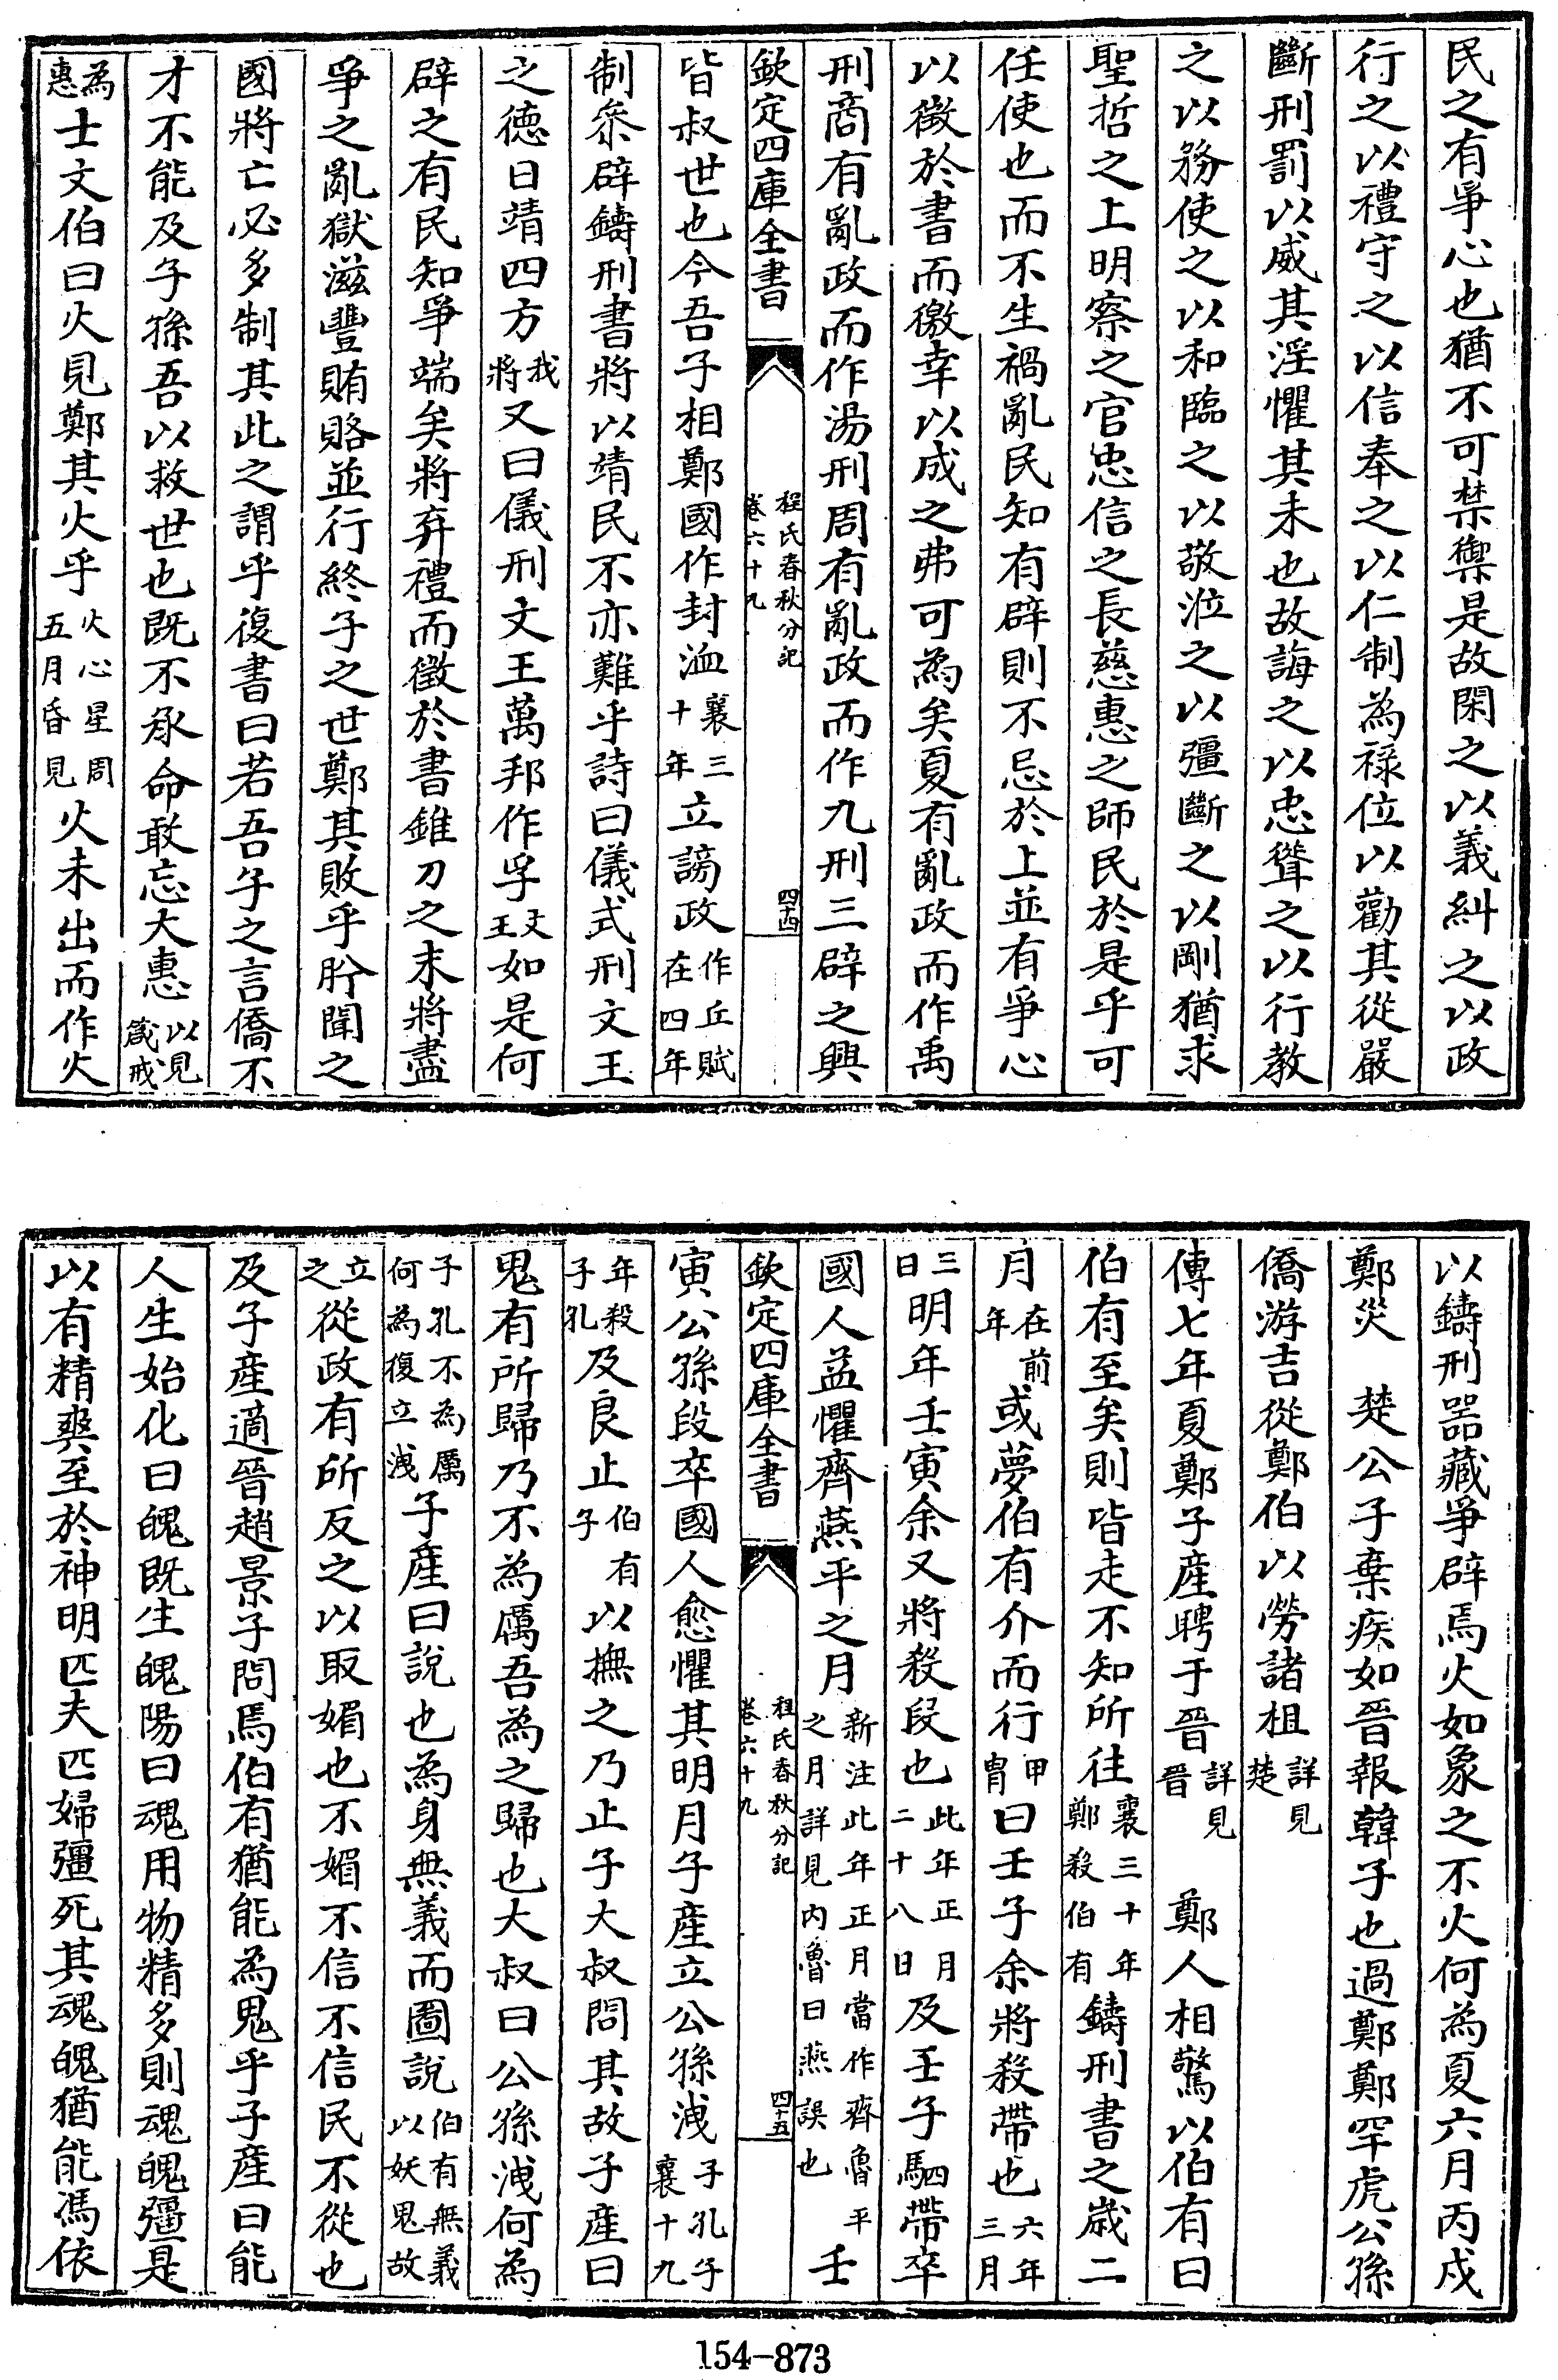 民之有爭心也猶不可禁禦是故閑之以義糾之以政
行之以禮守之以信奉之以仁制為禄位以勸其從嚴
斷刑罰以威其淫懼其未也故誨之以忠聳之以行教
之以務使之以和臨之以敬涖之以彊斷之以剛猶求
聖哲之上明察之官忠信之長慈惠之師民於是乎可
任使也而不生禍亂民知有辟則不忌於上並有爭心
以徵於書而徼幸以成之弗可為矣夏有亂政而作禹
刑商有亂政而作湯刑周有亂政而作九刑三辟之興
欽定四庫全書 程氏春秋分記 卷六十九 四十四
皆叔世也今吾子相鄭國作封洫襄三十年立謗政作丘賦在四年
制叅辟鑄刑書將以靖民不亦難乎詩曰儀式刑文王
之德日靖四方我將又曰儀刑文王萬邦作孚文王如是何
辟之有民知爭端矣將弃禮而徵於書錐刀之末將盡
爭之亂獄滋豐賄賂並行終子之世鄭其敗乎肸聞之
國將亡必多制其此之謂乎復書曰若吾子之言僑不
才不能及子孫吾以救世也既不承命敢忘大惠以見箴戒
為惠士文伯曰火見鄭其火乎火心星周五月昏見火未出而作火
以鑄刑器藏爭辟焉火如象之不火何為夏六月丙戌
鄭災　楚公子棄疾如晉報韓子也過鄭鄭罕虎公孫
僑游吉從鄭伯以勞諸柤詳見楚
傳七年夏鄭子產聘于晉詳見晉　鄭人相驚以伯有曰
伯有至矣則皆走不知所往襄三十年鄭殺伯有鑄刑書之歲二
月在前年或夢伯有介而行甲胄曰壬子余將殺帶也六年三月
三日明年壬寅余又將殺段也此年正月二十八日及壬子駟帶卒
國人益懼齊燕平之月新注此年正月當作齊魯平之月詳見内魯曰燕誤也壬
欽定四庫全書 程氏春秋分記 卷六十九 四十五
寅公孫段卒國人愈懼其明月子產立公孫洩子孔子襄十九
年殺子孔及良止伯有子以撫之乃止子大叔問其故子產曰
鬼有所歸乃不為厲吾為之歸也大叔曰公孫洩何為
子孔不為厲何為復立洩子產曰說也為身無義而圖說伯有無義以妖鬼故
立之從政有所反之以取媚也不媚不信不信民不從也
及子產適晉趙景子問焉伯有猶能為鬼乎子產曰能
人生始化曰魄既生魄陽曰魂用物精多則魂魄彊是
以有精爽至於神明匹夫匹婦彊死其魂魄猶能馮依
154-873